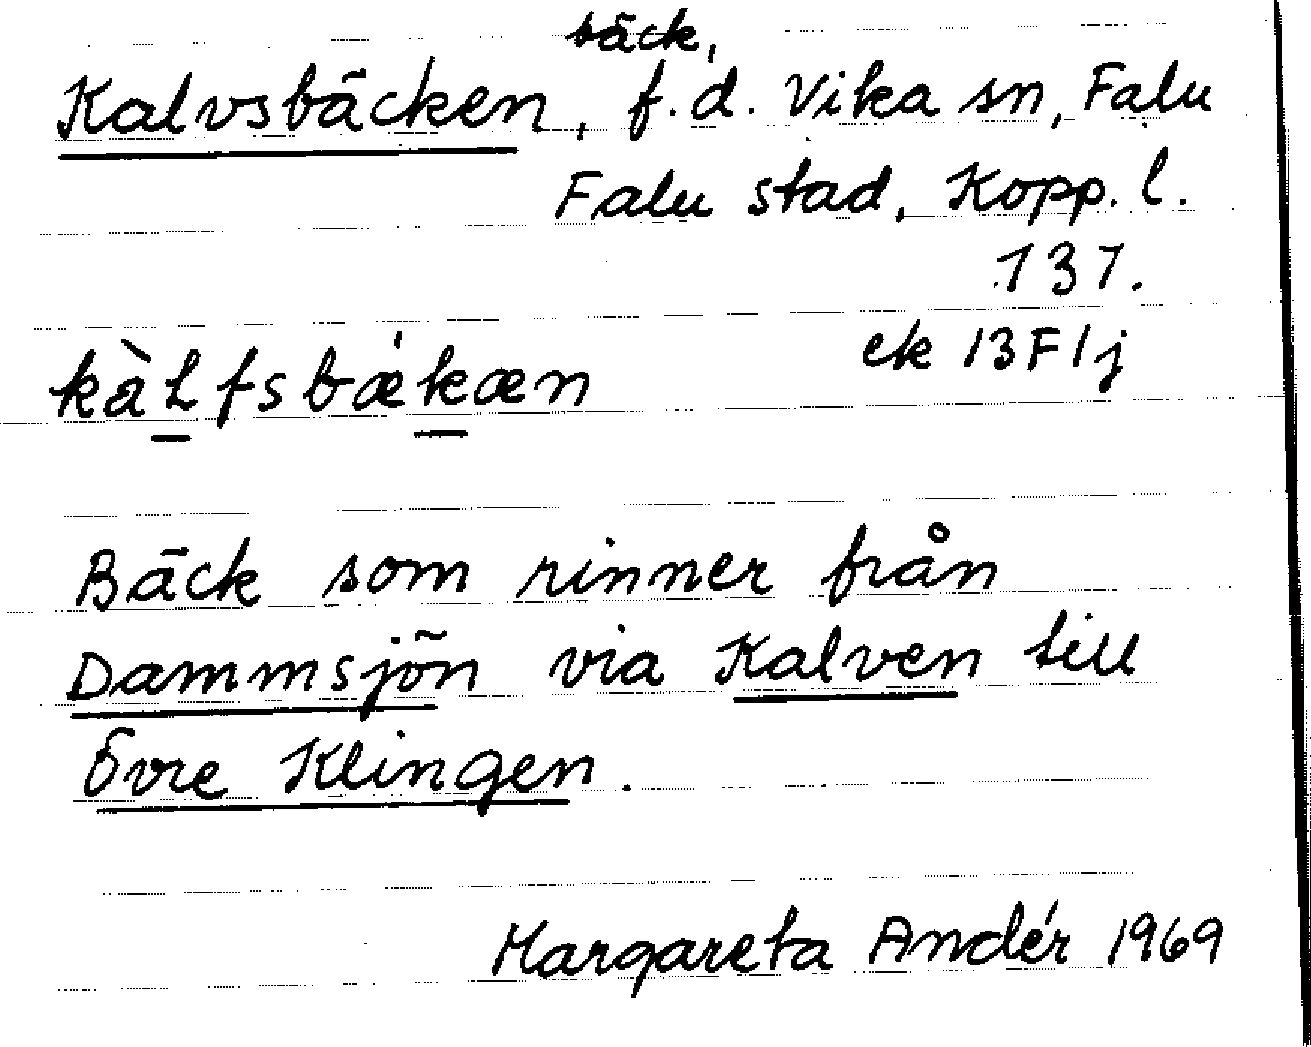 bäck,
Kalvsbäcken, f.d. Vika sn, Falu
Falu stad, Kopp. l.
137.
ek 13F1j
kàLfsbæ'kæn
Bäck som rinner från
Dammsjön via Kalven till
Övre Klingen.
Margareta Andér 1969